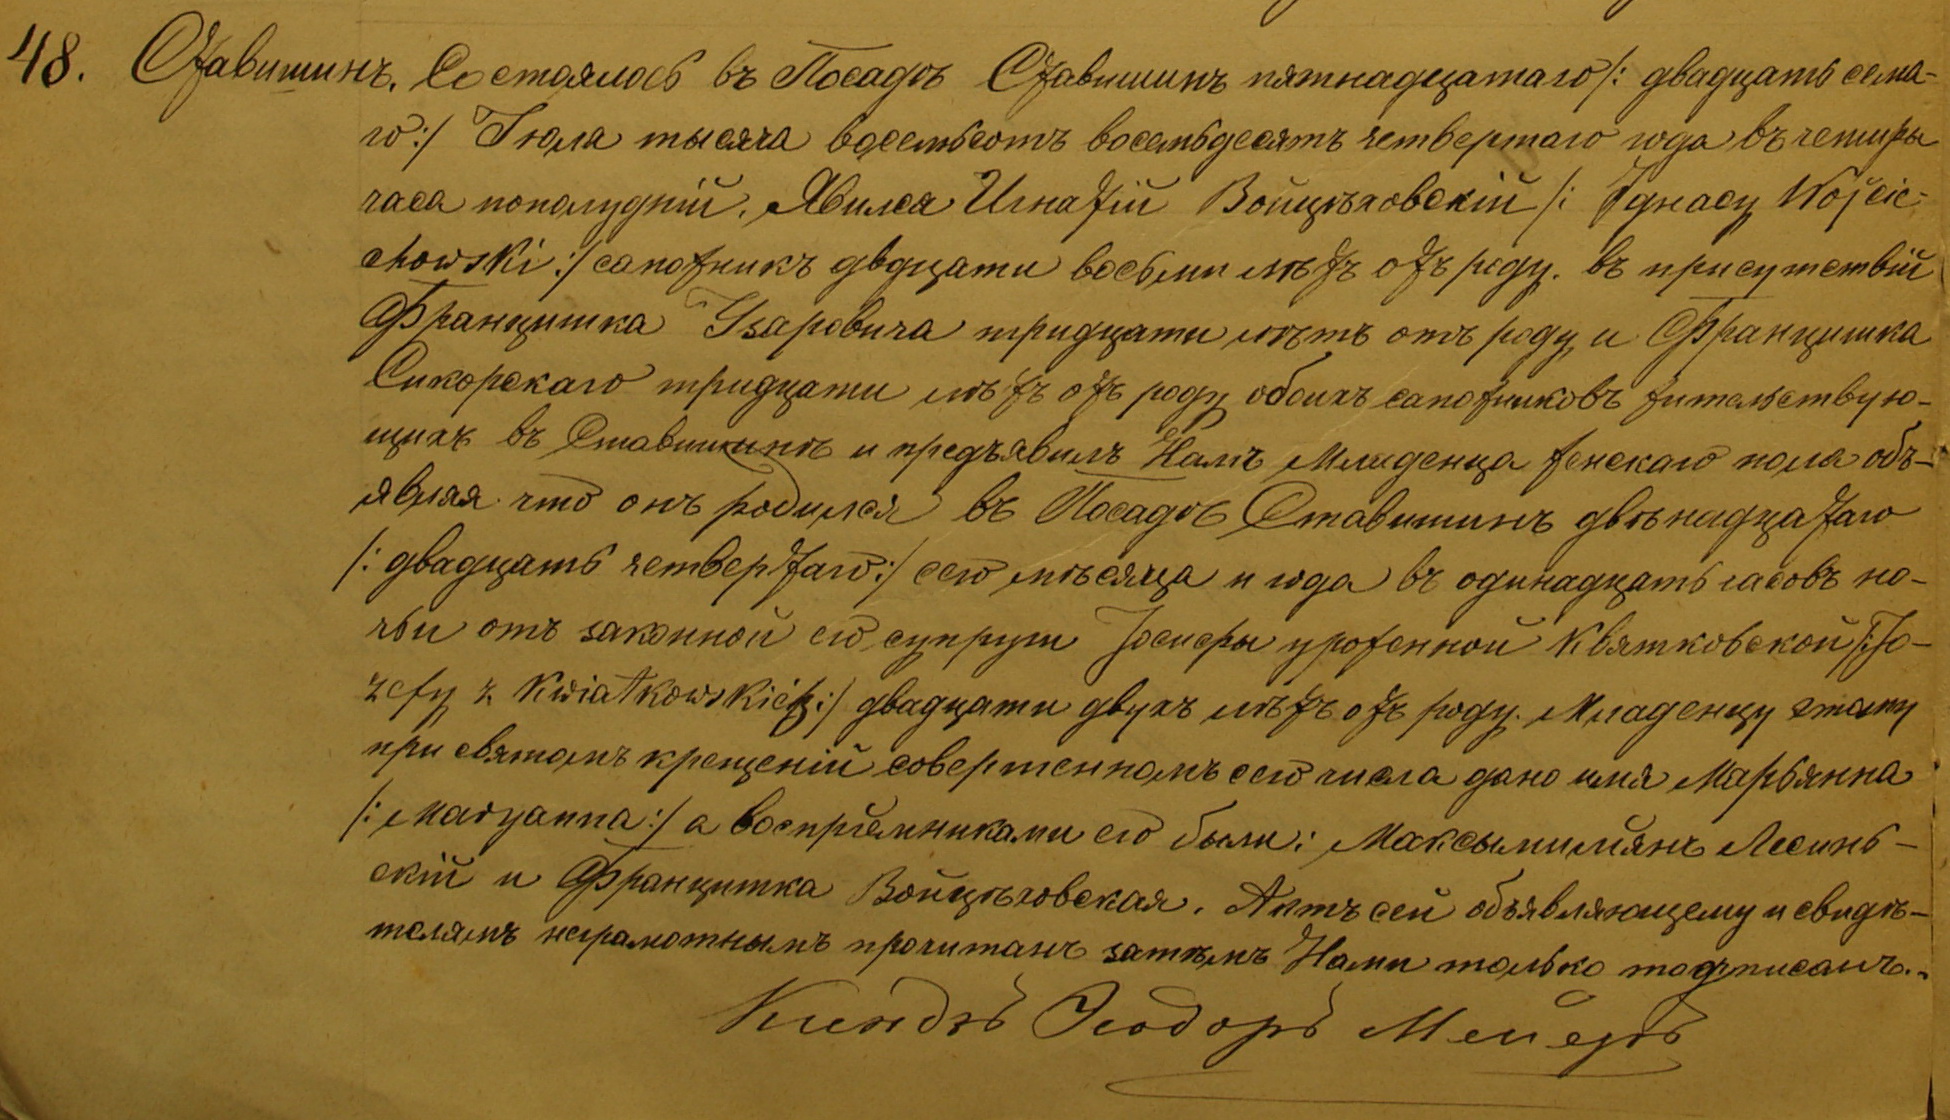 48. Ставишинъ. Состоялось въ Посадѣ Ставишинъ пятнадцатаго /: двадцать седма-
го :/ Іюля тысяча восемьсотъ восемьдесятъ четвертаго года въ четыры
часа пополудній. Явился Игнатій Войцѣховскій /: Ignacy Wojcie-
chowski :/ сапожникъ двдцати восьми лѣтъ отъ роду. въ присутствій
Францишка Узаровича тридцати лѣтъ отъ роду и Францишка
Сикорскаго тридцати лѣтъ отъ роду обоихъ сапожниковъ жительствую-
щихъ въ Ставишинѣ и предъявилъ Намъ Младенца женскаго пола объ-
являя что онъ родился въ Посадѣ Ставишинъ двѣнадцатаго
/: двадцать четвертаго :/ сего мѣсяца и года въ одинадцать часовъ но-
чьи отъ законной его супруги Іосифы урожеnной Квятковской /: Jo-
zefy z Kwiatkowskich :/ двадцати двухъ лѣтъ отъ роду. Младенцу этому
при святомъ крещеній совершенномъ сего числа дано имя Марьянна
/: Maryanna :/ а воспріемниками его были: Максымиліянъ Лесинь-
скій и Францишка Войцѣховская. Актъ сей объявляющему и свидѣ-
телямъ неграмотнымъ прочитанъ затѣмъ Нами только подписанъ.
Ксендзъ Теодоръ Мейеръ